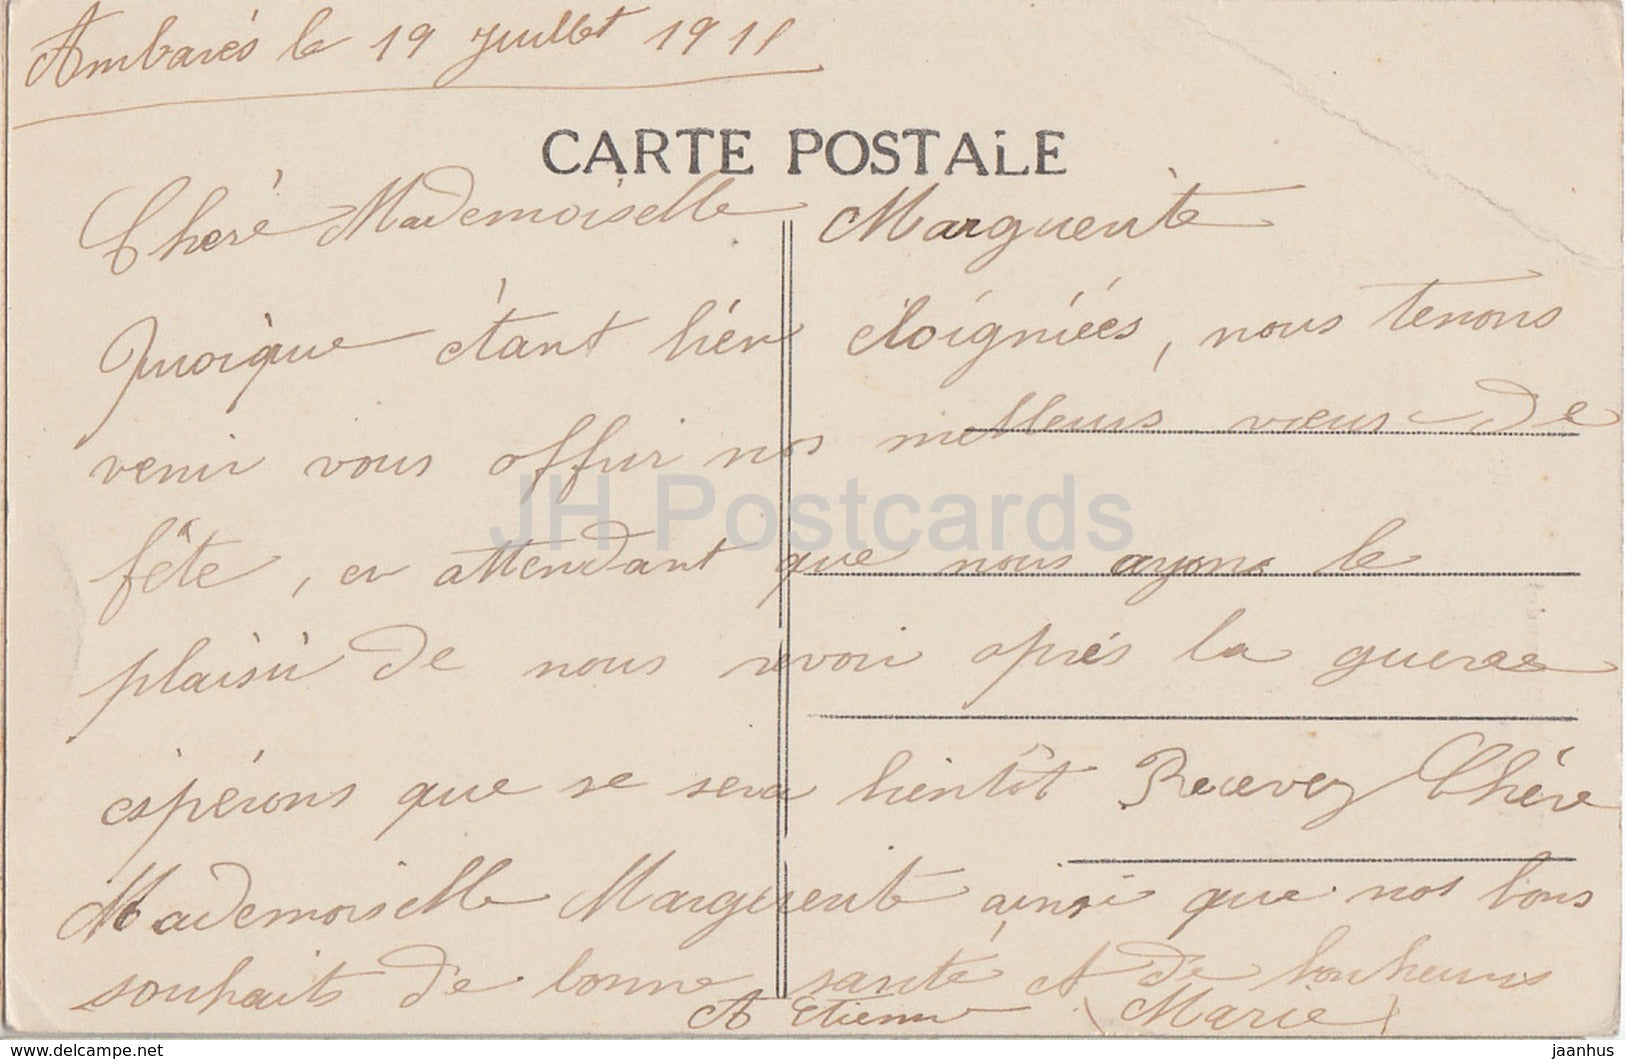 Ambarés le 19 Juillet 1915
CARTE POSTALE
Cheré Mademoiselle Marguerite
Quoique étant bién éloigniéés, nous tenons
venir vous offrir nos meilleurs vœus de
fête, en attendant que nous ayons le
plaisir de nous revoir aprés la guerre
éspérons que se sera bientôt Recevez Chére
Mademoiselle Marguerite ainsi que nos bons
souhaits de bonne santé et de bonheurs
A Etienne (Marie)
JH Postcards
delcampe.net
jaanhus